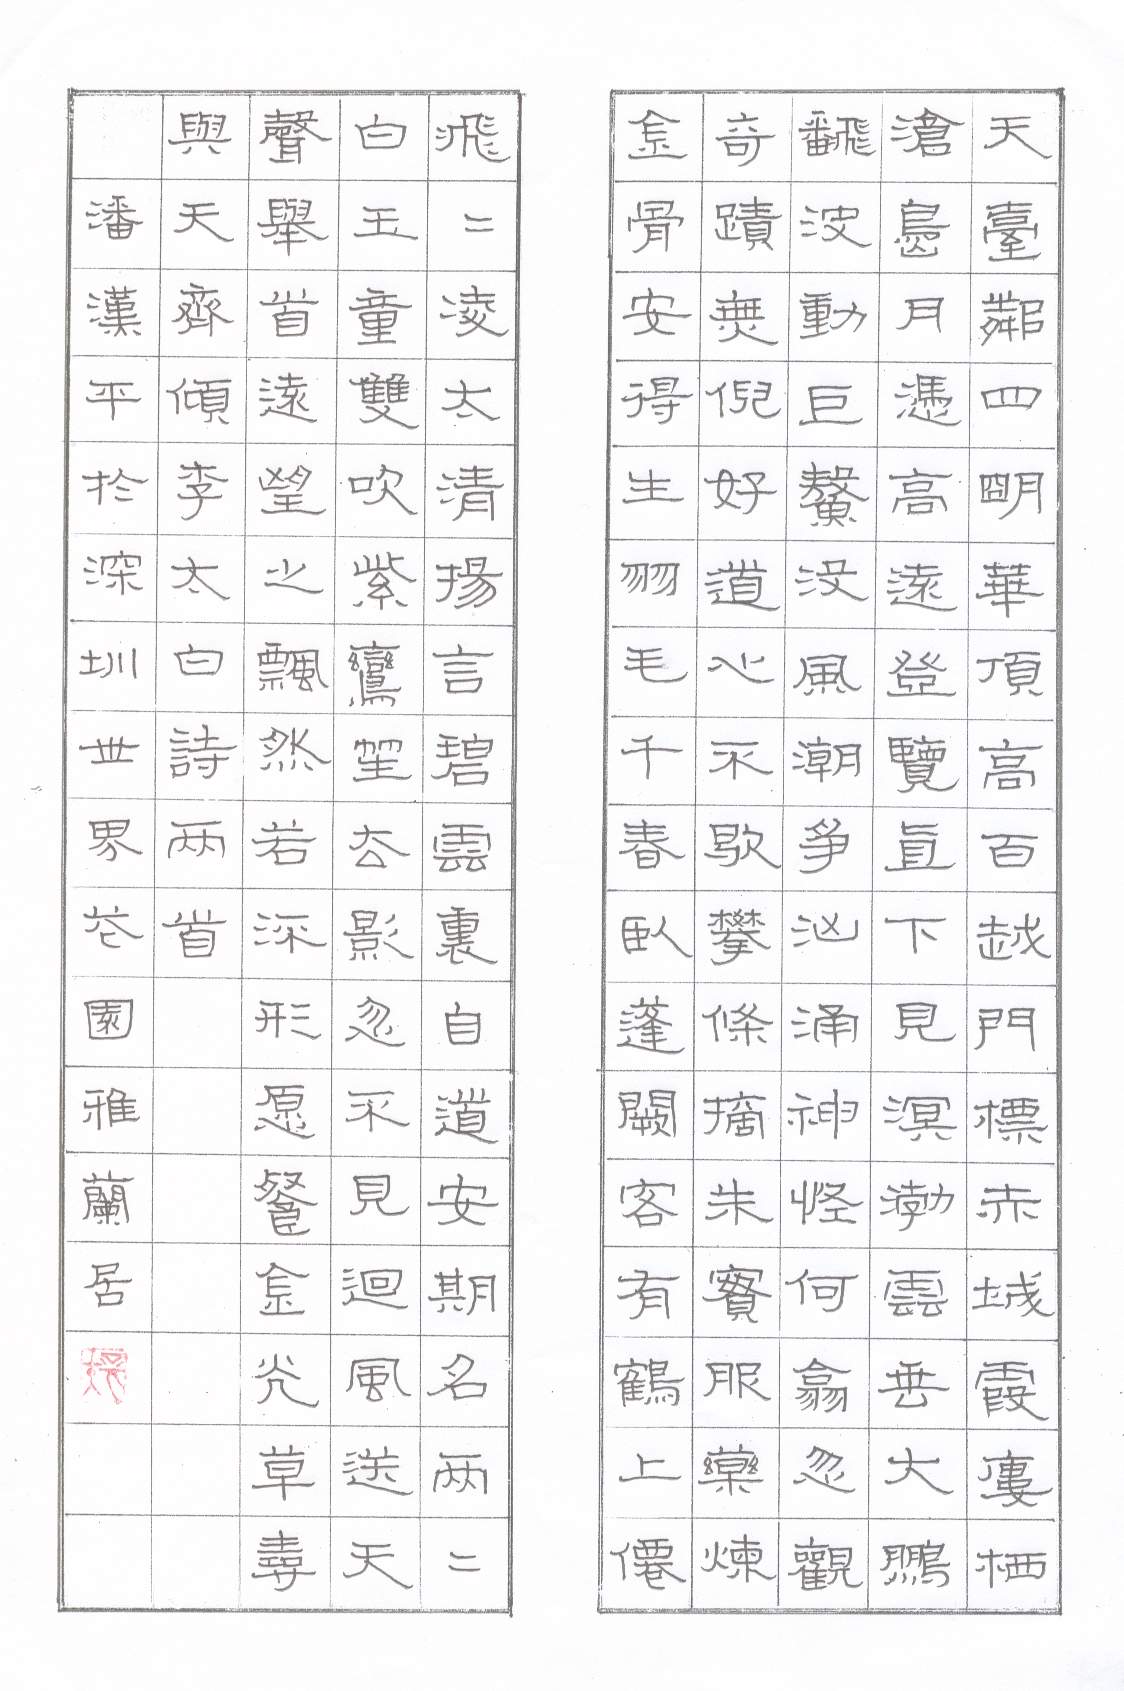 天臺鄰四明華頂高百越門標赤城霞樓栖
滄島月憑高遠登覽直下見溟渤雲垂大鵬
翻波動巨鰲没風潮爭洶涌神怪何翕忽觀
奇蹟無倪好道心不歇攀條摘朱實服藥煉
金骨安得生羽毛千春臥蓬闕客有鶴上僊
飛二凌太清揚言碧雲裏自道安期名两二
白玉童雙吹紫鸞笙去影忽不見迴風送天
聲舉首遠望之飄然若深形愿餐金光草壽
與天齊傾李太白詩两首
潘漢平於深圳世界花園雅蘭居